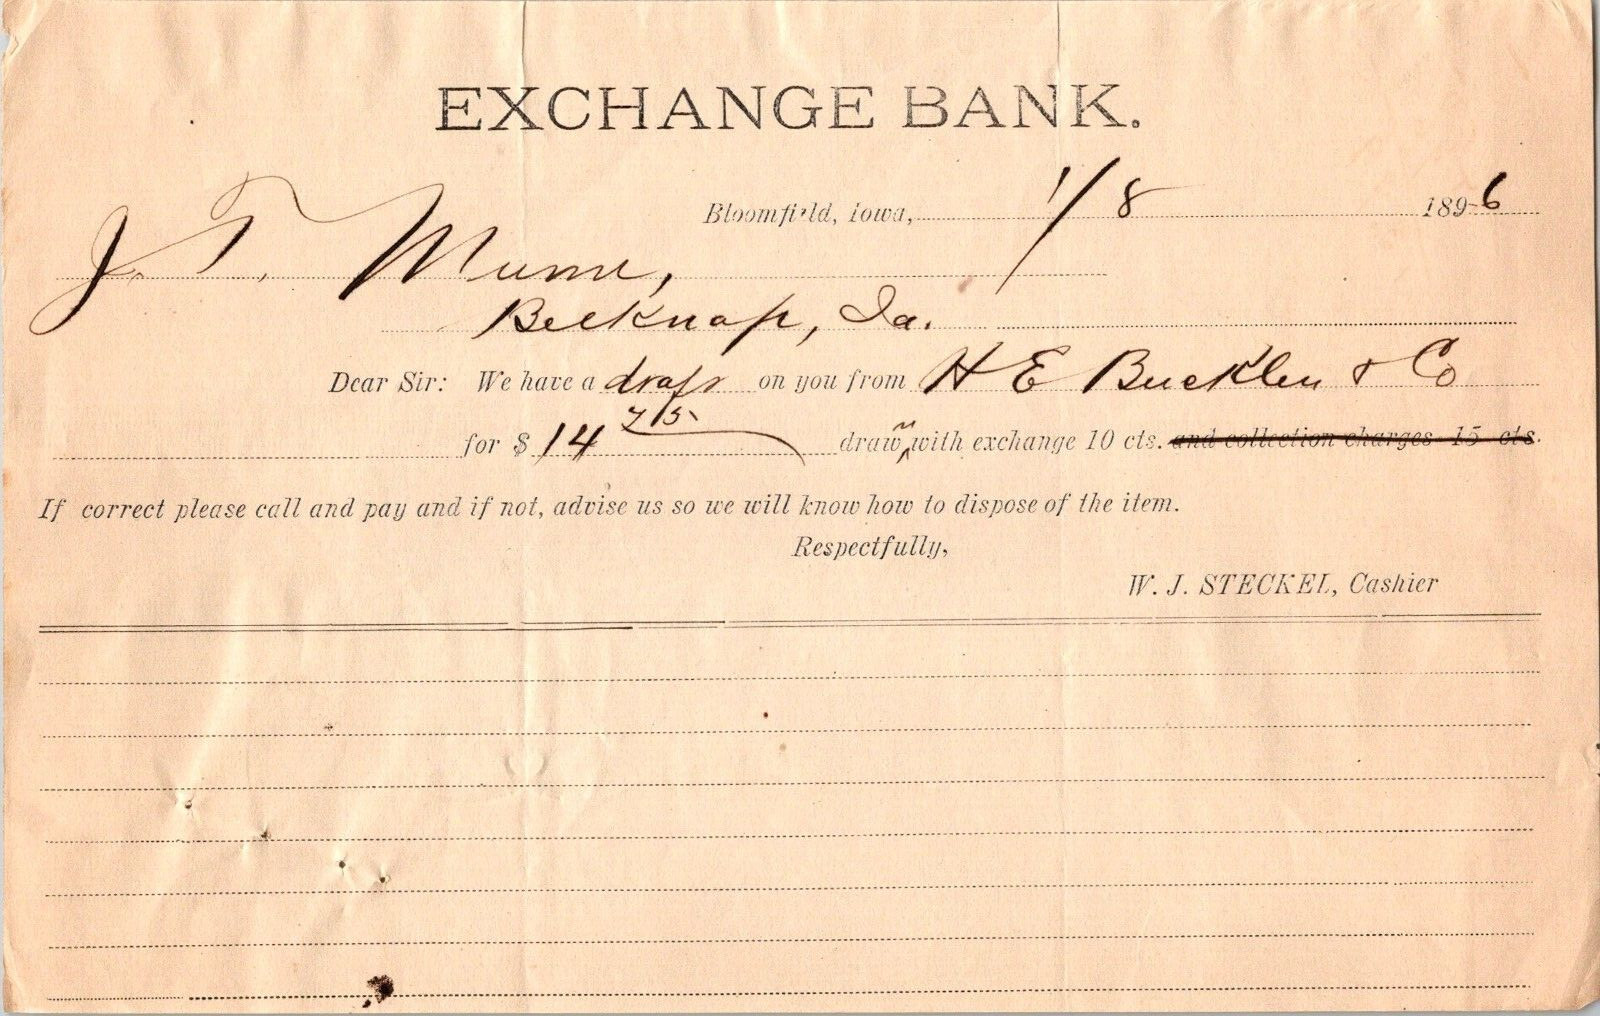 EXCHANGE BANK.
Bloomfield, Iowa, 1/8 1896
J. T. Munn,
Belknap, Ia.
Dear Sir: We have a draft on you from H E Bucklen & Co
for $ 14 75 drawn with exchange 10 cts. and collection charges 15 cts.
If correct please call and pay and if not, advise us so we will know how to dispose of the item.
Respectfully,
W. J. STECKEL, Cashier